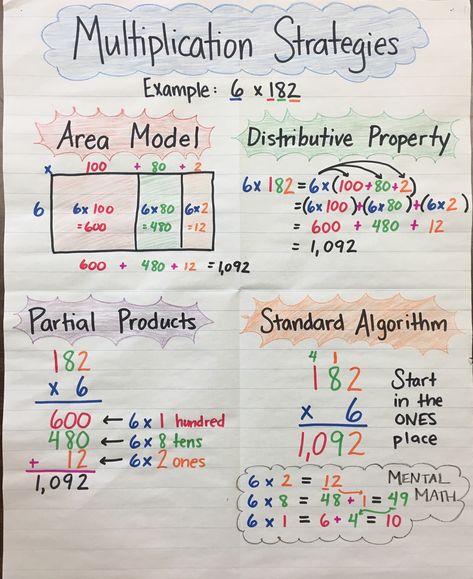 Multiplication Strategies
Example: 6 x 182
Area Model
x 100 + 80 + 2
6 6x100 6x80 6x2
=600 =480 =12
600 + 480 + 12 = 1,092
Distributive Property
6x182 = 6x(100+80+2)
=(6x100)+(6x80)+(6x2)
= 600 + 480 + 12
= 1,092
Partial Products
182
x 6
600 ← 6x1 hundred
480 ← 6x8 tens
+ 12 ← 6x2 ones
1,092
Standard Algorithm
4 1
182
x 6
1,092
Start
in the
ONES
place
MENTAL
MATH
6 x 2 = 12
6 x 8 = 48 + 1 = 49
6 x 1 = 6 + 4 = 10